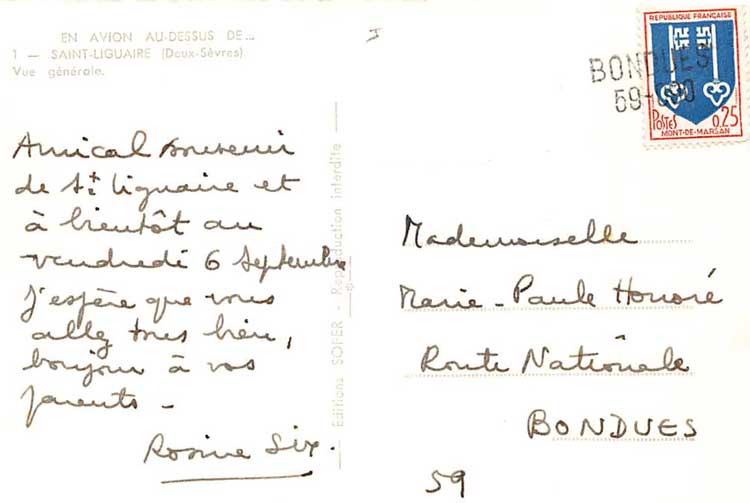 EN AVION AU-DESSUS DE...
1 — SAINT-LIGUAIRE (Deux-Sèvres)
Vue générale.
Amical souvenir
de St. Liguaire et
à bientôt au
vendredi 6 Septembre
J'espère que vous
allez tres bien,
bonjour à vos
parents -
Rosine Six.
Editions SOFER - Reproduction interdite
REPUBLIQUE FRANÇAISE
POSTES
0,25
MONT-DE-MARSAN
BONDUES
Mademoiselle
Marie-Paule Honoré
Route Nationale
BONDUES
59